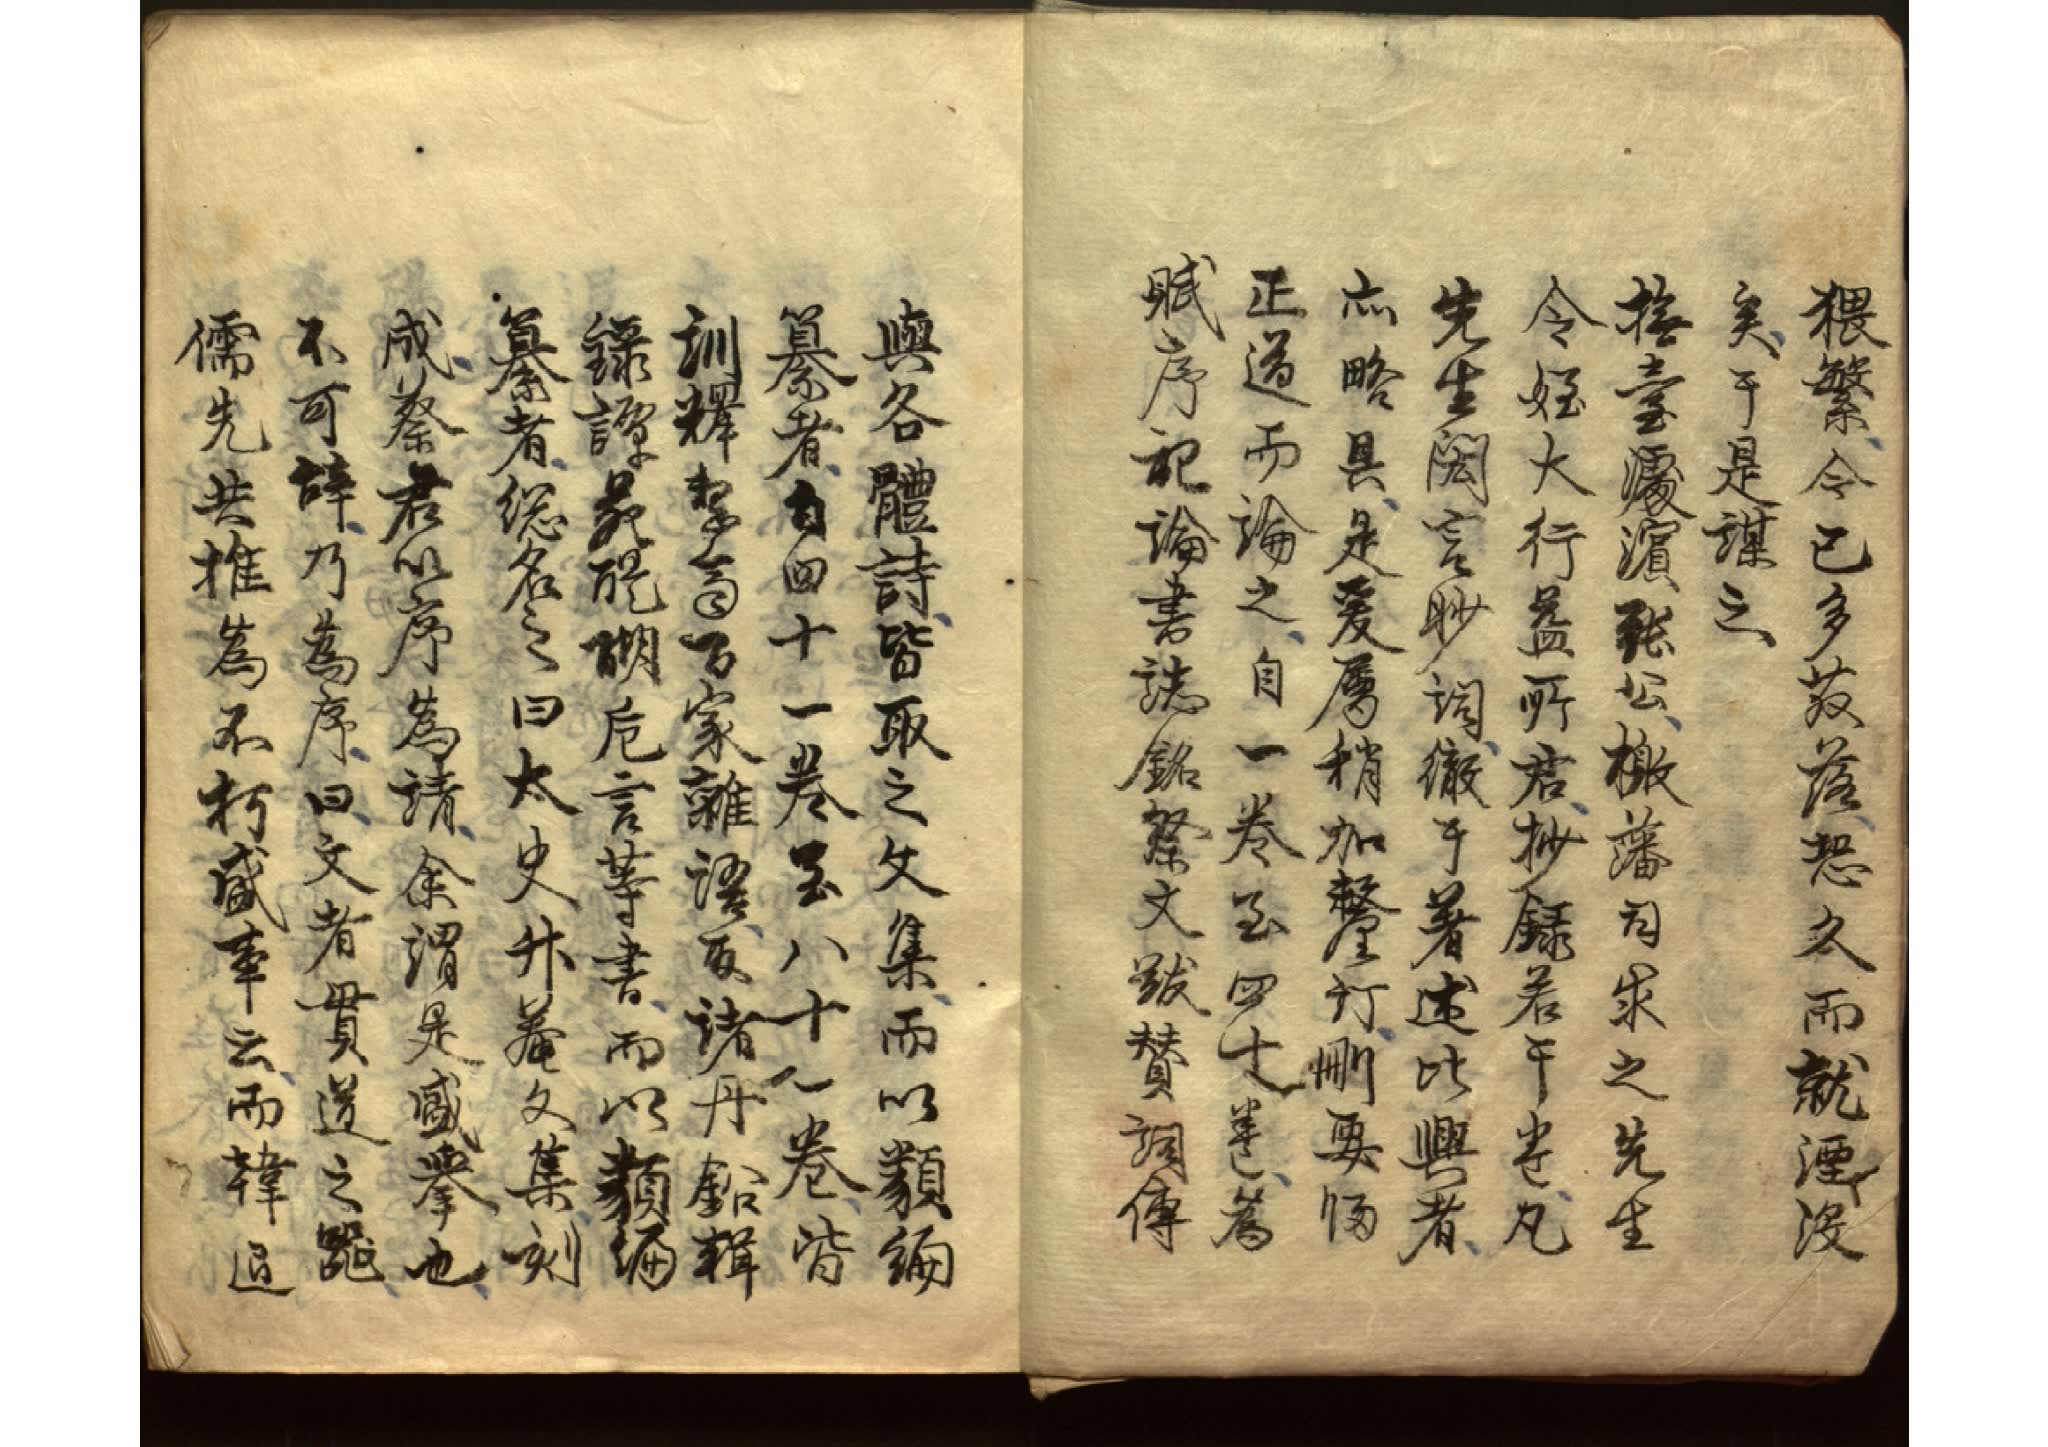 猥繁令已多散落恐久而就湮没
矣于是謀之
撫臺濠濱張公檄藩司求之先生
令姪大行益所君抄録若干卷凡
先生閎言眇詞徹于著述比興者
亦略具是爰属稍加釐訂刪要歸
正道而論之自一卷至四十卷為
賦序記論書誌銘祭文跋賛詞傳
與各體詩皆取之文集而以類編
纂者自四十一卷至八十一卷皆
訓釋諸家雜語取諸丹鉛輯
錄譚苑醍醐卮言等書而以類編
纂者總名之曰太史升菴文集刻
成蔡君以序為請余謂是盛舉也
不可辞乃為序曰文者貫道之器
儒先共推為不朽盛事云而韓退